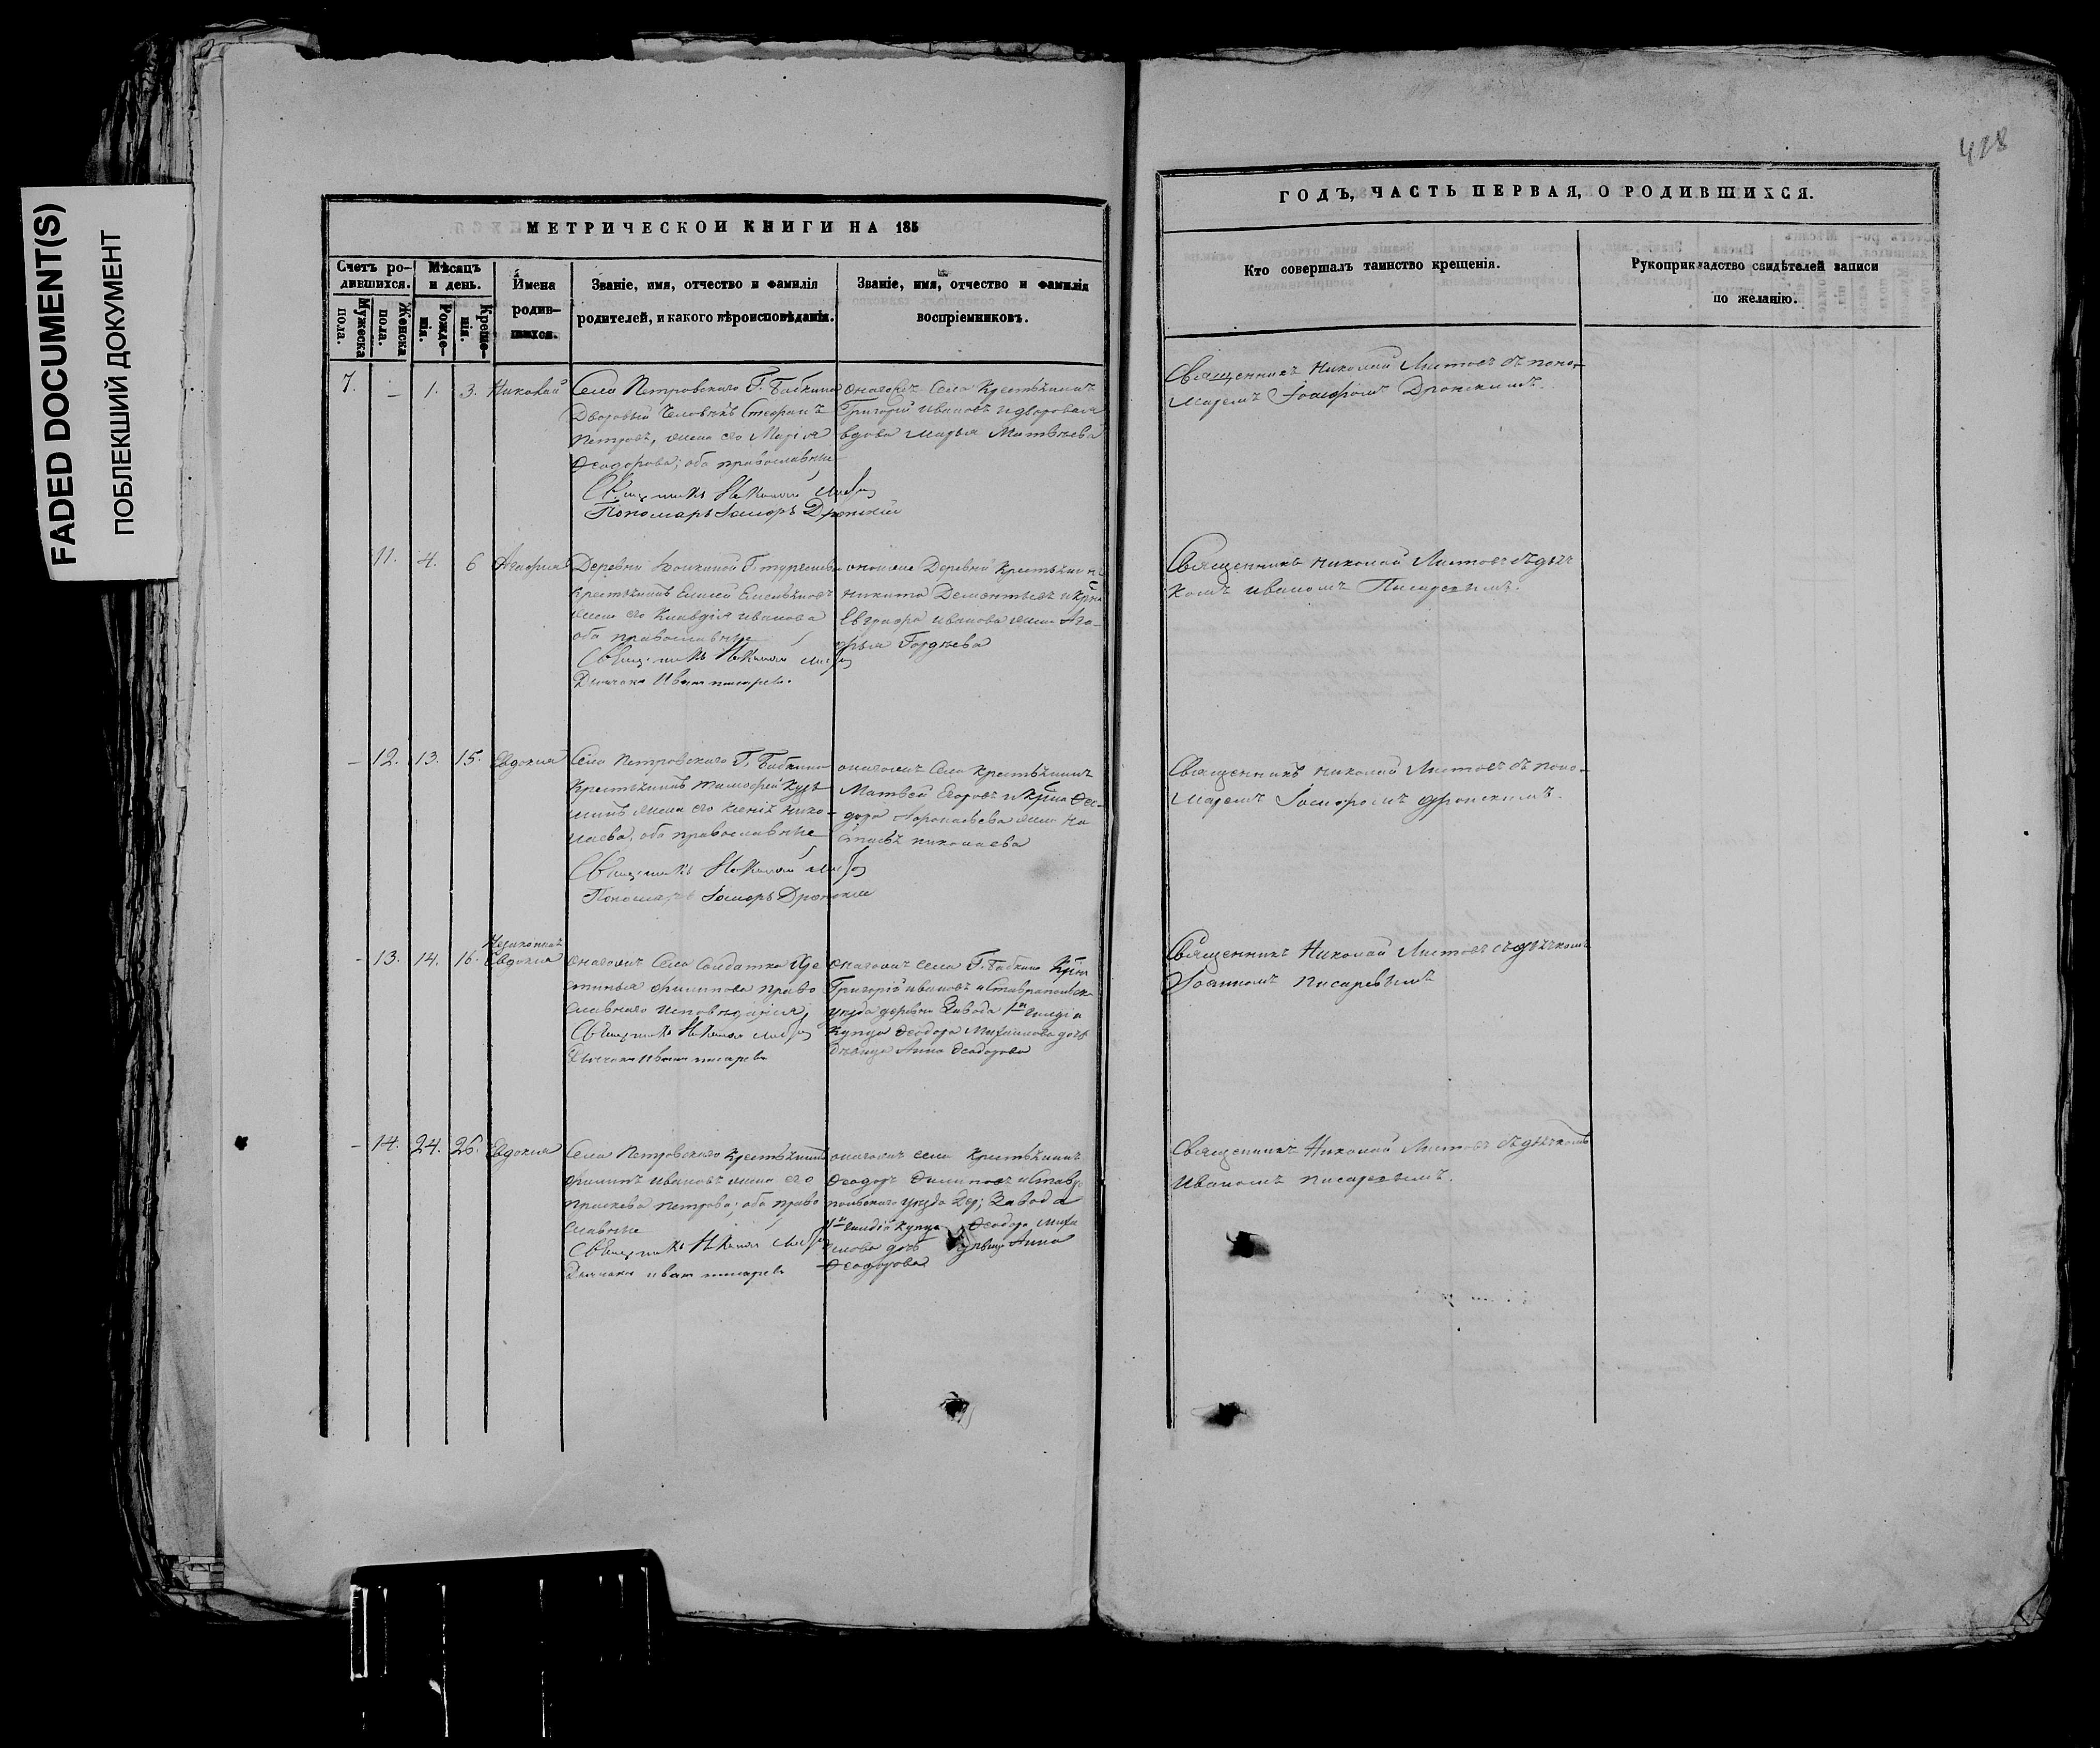 FADED DOCUMENT(S)
ПОБЛЕКШИЙ ДОКУМЕНТ
МЕТРИЧЕСКОЙ КНИГИ НА 185
Счетъ ро-
дившихся.
Мужеска
пола.
Женска
пола.
Мѣсяцъ
и день.
Рожде-
нія.
Креще-
нія.
Имена
родив-
шихся.
Званіе, имя, отчество и фамилія
родителей, и какого вѣроисповѣданія.
Званіе, имя, отчество и фамилія
воспріемниковъ.
7. – 1. 3. Николай
Села Петровскаго Г. Бабкина
Дворовый человѣкъ Стефанъ
Петровъ, жена его Марія
Ѳеодорова; оба православные
Священникъ Николай
Пономарь Іосифъ Дронскій
Онагожъ Села Крестьянинъ
Григорій Ивановъ и дворовая
вдова Марья Матвѣева
11. 4. 6 Агафия
Деревни Г.
Крестьянинъ
жена его Клавдія Иванова
оба православные
Священникъ Николай
Дьячокъ Иванъ Писаревъ.
оной же Деревни Крестьянинъ
Никита Дементьевъ и
Евграфа Иванова жена Ага-
фья Гордѣева
– 12. 13. 15. Евдокия
Села Петровскаго Г. Бабкина
Крестьянинъ Тимофей Кузь
минъ жена его Ксенія Нико-
лаева, оба православные
Священникъ Николай
Пономарь Іосифъ Дронскій
онагожъ Села Крестьянинъ
Матвей Егоровъ и Ѳео-
дора жена На
стасья Николаева
– 13. 14. 16. Незаконная
Евдокия
Онагожъ Села Солдатка
Филипова право
славнаго исповѣданія,
Священникъ Николай
Дьячокъ Иванъ Писаревъ
Онагожъ села Г. Бабкина
Григорій Ивановъ и Ставропольска
уѣзда деревни Завода 1й гилдіи
Купца Ѳеодора Михайлова дочь
дѣвица Анна Ѳеодорова
– 14. 24. 26. Евдокия
Села Петровскаго Крестьянинъ
Филипъ Ивановъ жена его
Прасковья Петрова; оба право
славные
Священникъ Николай
Дьячокъ Иванъ Писаревъ
онагожъ села Крестьянинъ
Ѳеодоръ Филиповъ и Ставро
польскаго уѣзда Дер; Завода
1й гилдіи купца Ѳеодора Миха
илова дочь дѣвица Анна
Ѳеодорова
428
ГОДЪ, ЧАСТЬ ПЕРВАЯ, О РОДИВШИХСЯ.
Кто совершалъ таинство крещенія.
Рукоприкладство свидѣтелей записи
по желанію.
Священникъ Николай Листовъ съ поно-
маремъ Іосифомъ Дронскимъ.
Священникъ Николай Листовъ съ дьяч
комъ Иваномъ Писаревымъ.
Священникъ Николай Листовъ съ поно-
маремъ Іосифомъ Дронскимъ.
Священникъ Николай Листовъ съ дьячкомъ
Іоанномъ Писаревымъ
Священникъ Николай Листовъ съ дьячкомъ
Иваномъ Писаревымъ.